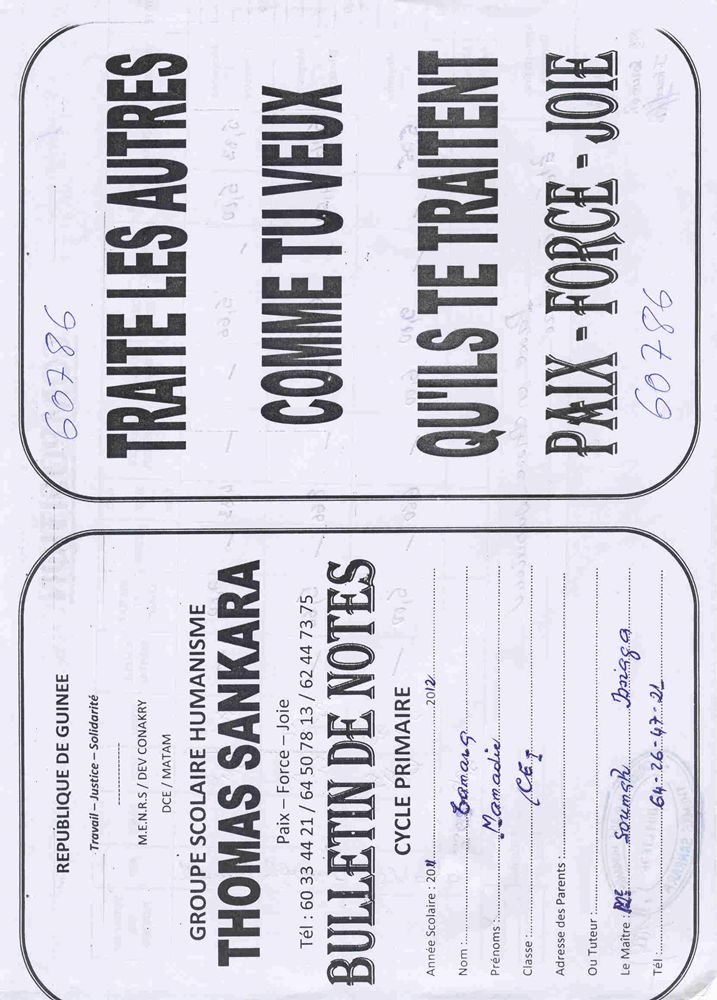 REPUBLIQUE DE GUINEE
Travail – Justice – Solidarité
M.E.N.R.S / DEV CONAKRY
DCE / MATAM
GROUPE SCOLAIRE HUMANISME
THOMAS SANKARA
Paix – Force – Joie
Tél : 60 33 44 21 / 64 50 78 13 / 62 44 73 75
BULLETIN DE NOTES
CYCLE PRIMAIRE
Année Scolaire : 2011 2012
Nom : Camara
Prénoms : Mamadie
Classe :
Adresse des Parents :
Ou Tuteur :
Le Maître : Soumah
Tél : 64-26-47-21
60786
TRAITE LES AUTRES
COMME TU VEUX
QU'ILS TE TRAITENT
PAIX - FORCE - JOIE
60786